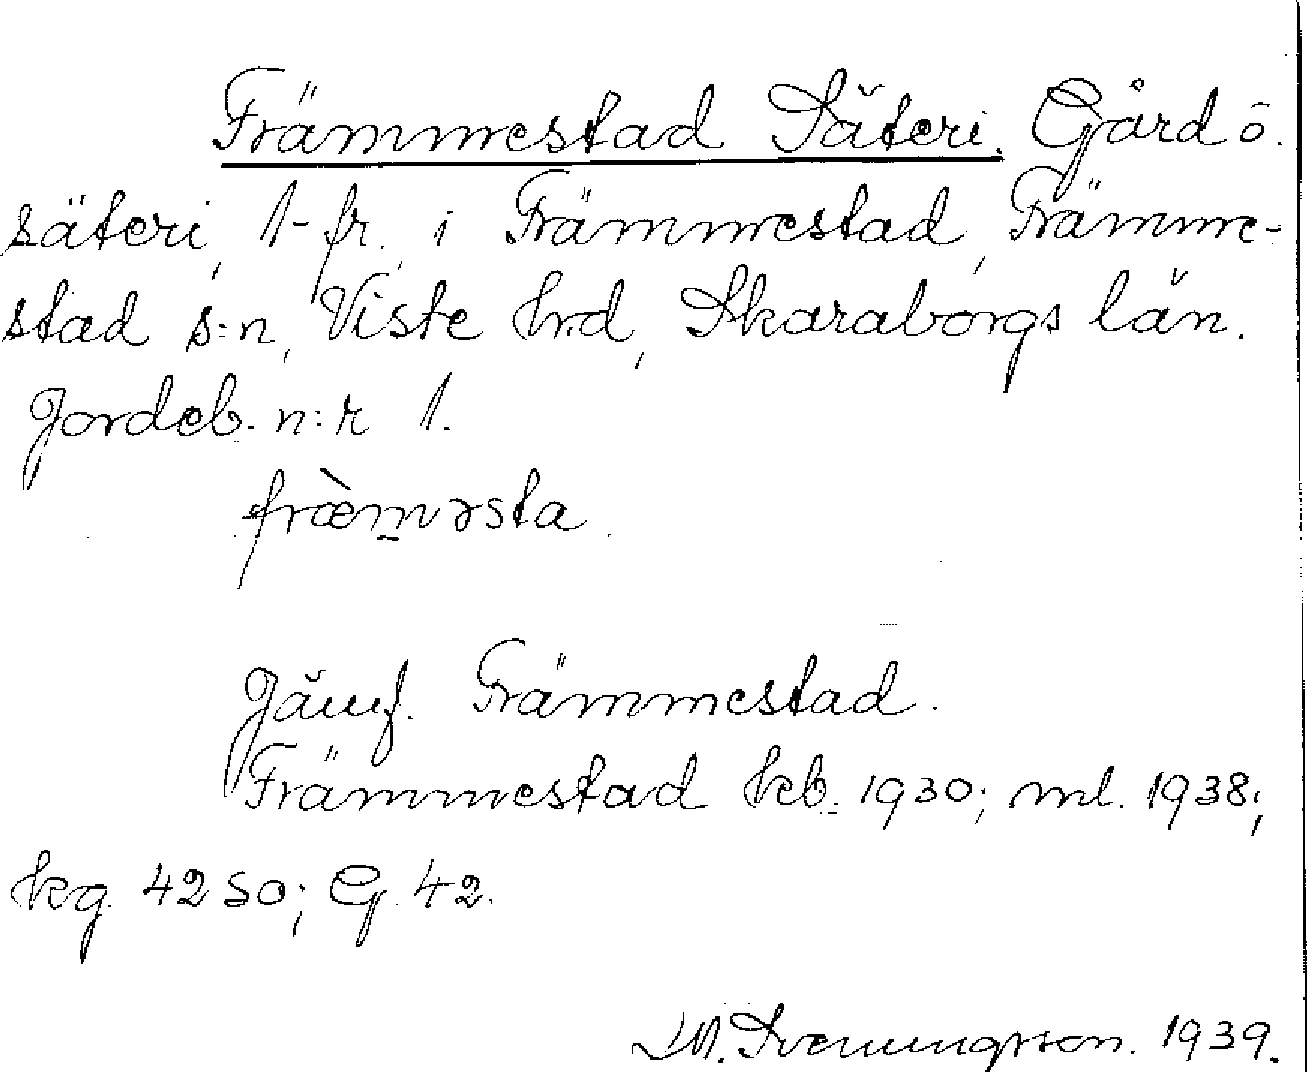 Främmestad Säteri. Gård o.
säteri, 1-fr., i Främmestad, Främme-
stad s:n, Viste hrd, Skaraborgs län.
Jordeb. n:r 1.
fræ̀m̠əsta.
Jämf. Främmestad.
Främmestad kb. 1930; ml. 1938;
kg. 4250; G. 42.
M. Svenungsson. 1939.